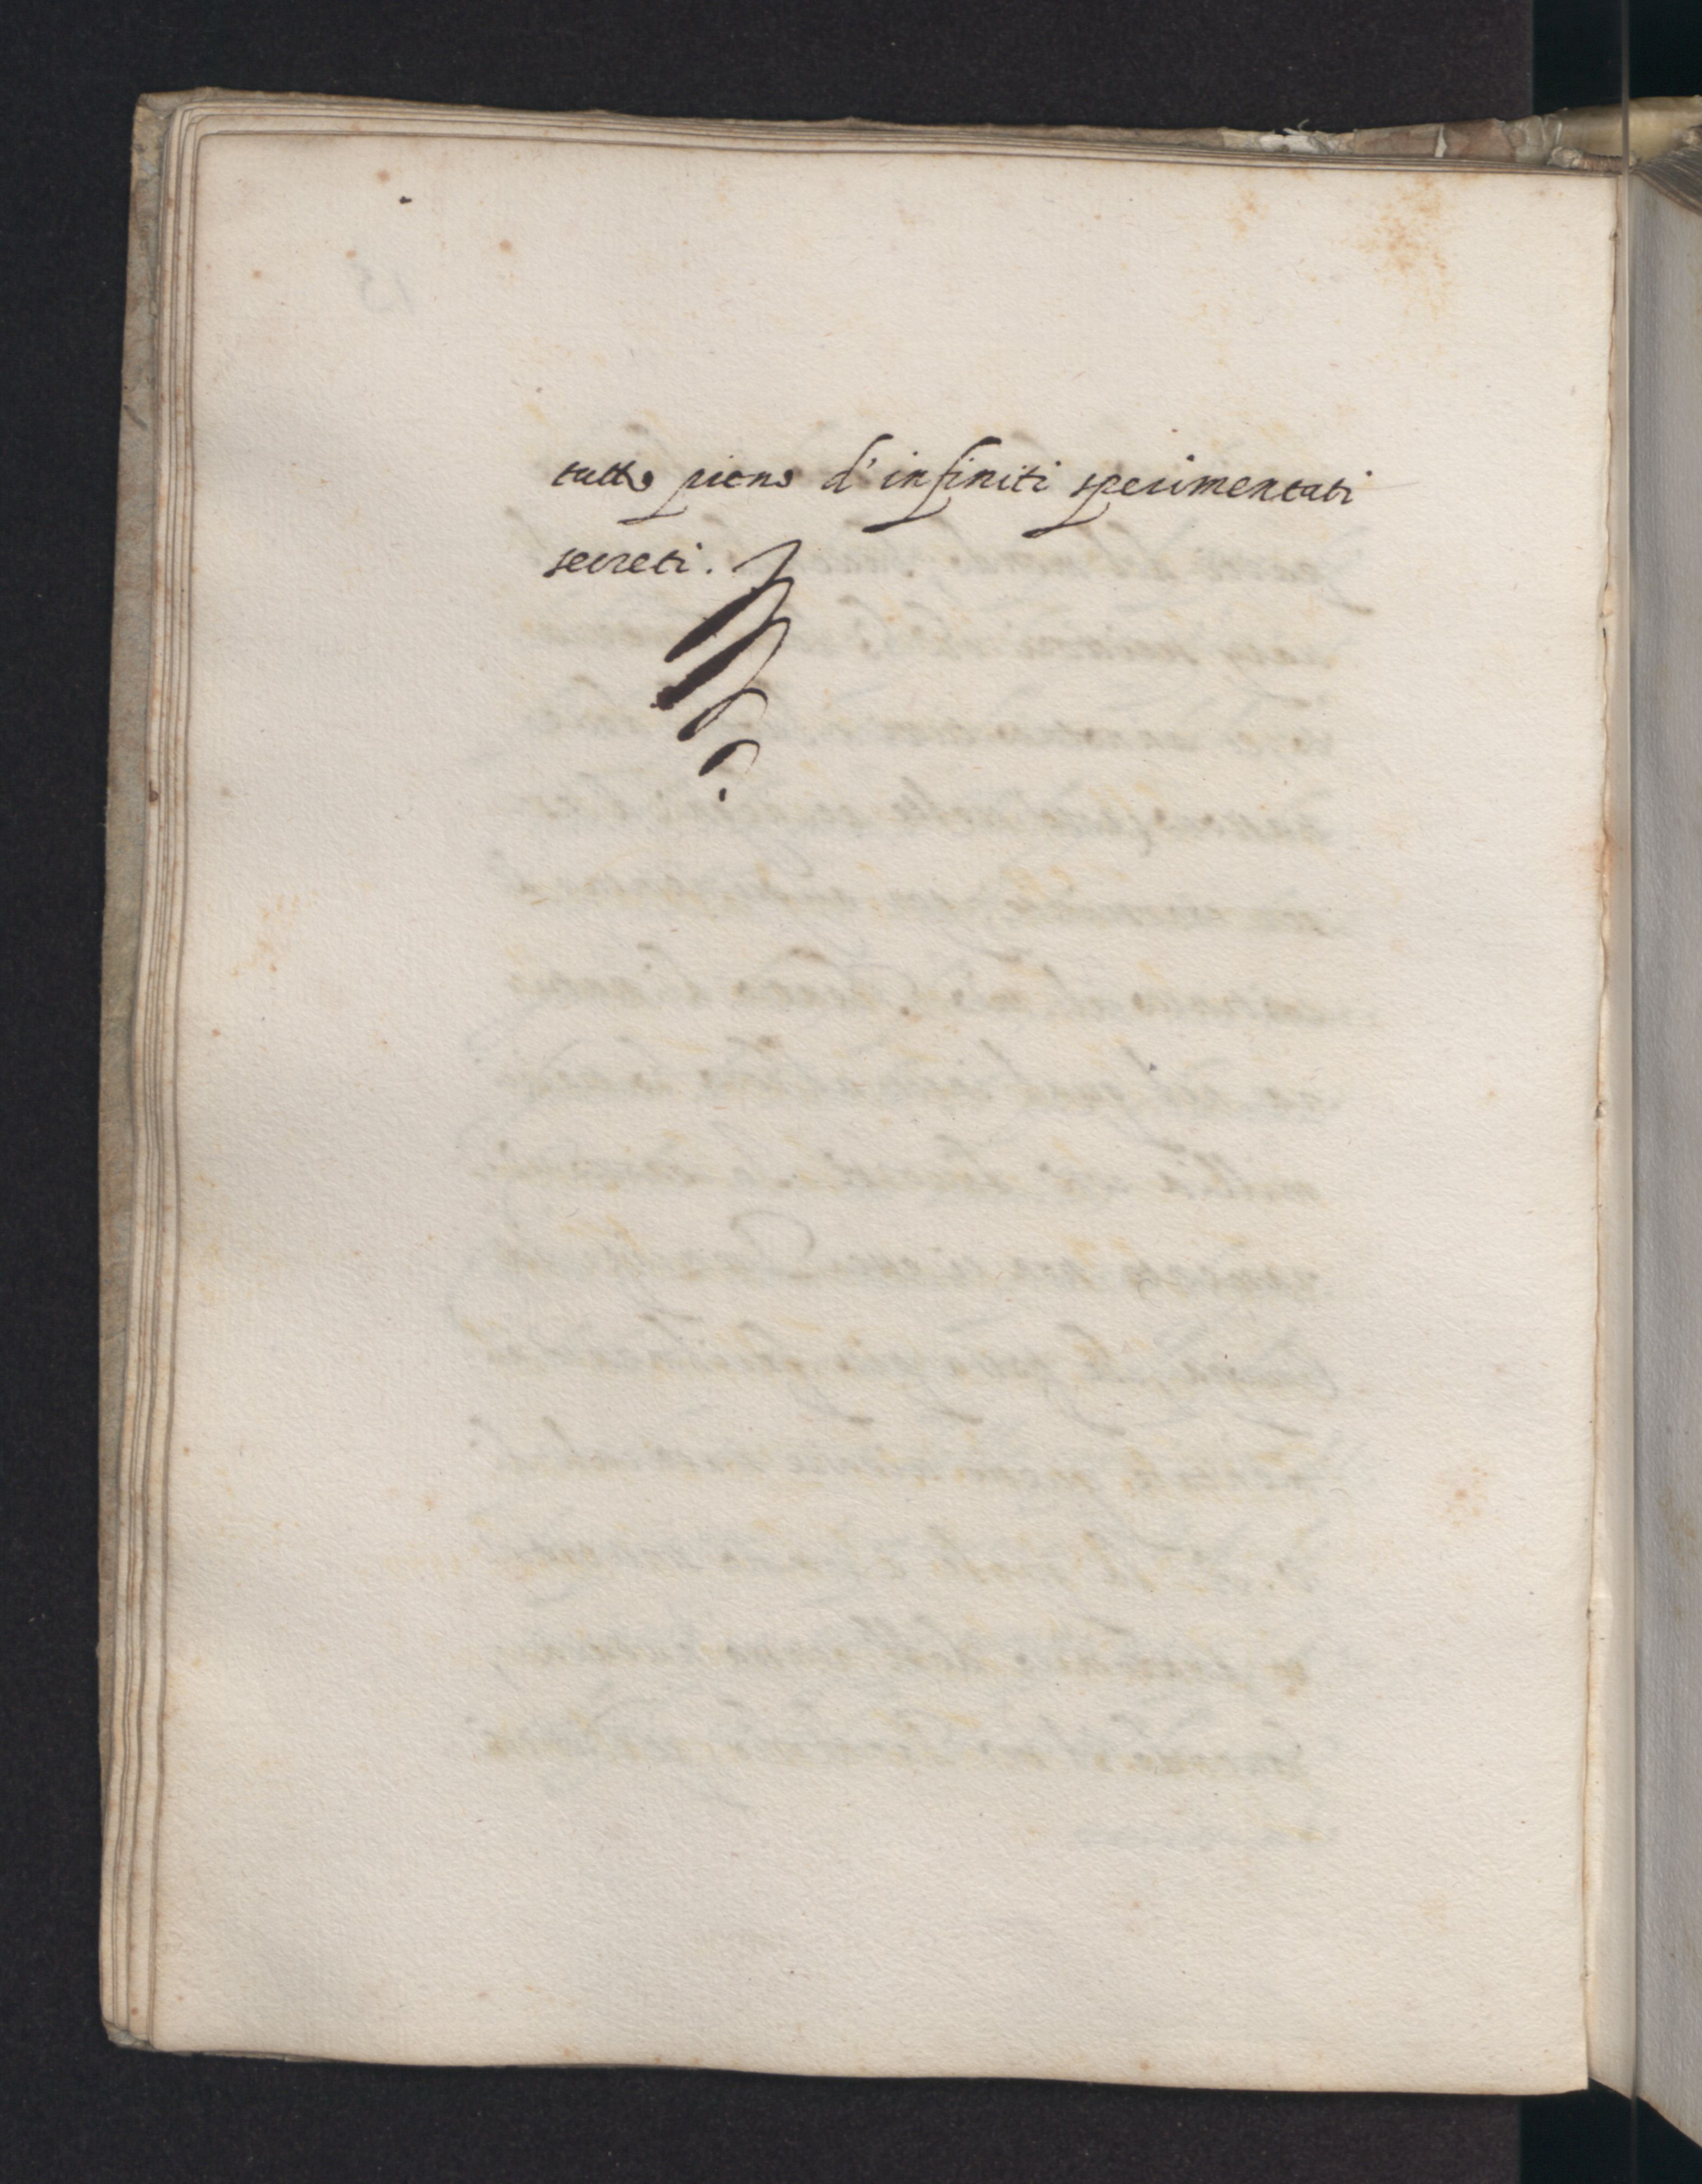 tutto pieno d'infiniti sperimentati
secreti.